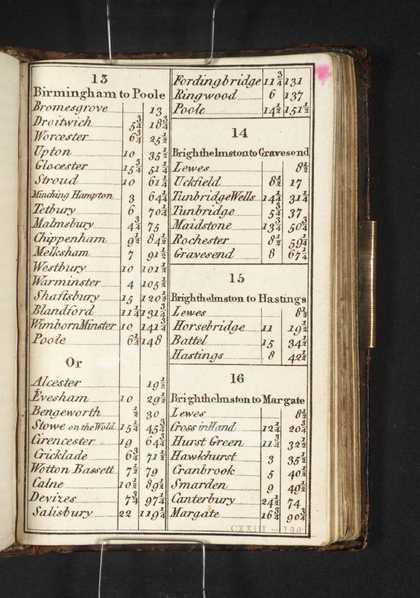 13
Birmingham to Poole
Bromesgrove 13
Droitwich 5¾ 18¾
Worcester 6¾ 25½
Upton 10 35½
Glocester 15¾ 51¼
Stroud 10 61¼
Minching Hampton 3 64¼
Tetbury 6 70¼
Malmsbury 4¾ 75
Chippenham 9½ 84½
Melksham 7 91½
Westbury 10 101½
Warminster 4 105½
Shaftsbury 15 120½
Blandford 11¼ 131¾
Wimborn Minster 10 141¾
Poole 6¼ 148
Or
Alcester 19½
Evesham 10 29½
Bengeworth ½ 30
Stowe on the Wold 15¾ 45¾
Cirencester 19 64¾
Cricklade 6¾ 71½
Wotton Bassett 7½ 79
Calne 10½ 89½
Devizes 7¾ 97¼
Salisbury 22 119¼
Fordingbridge 11¾ 131
Ringwood 6 137
Poole 14½ 151½
14
Brighthelmston to Gravesend
Lewes 8½
Uckfield 8½ 17
Tunbridge Wells 14¼ 31¼
Tunbridge 5¾ 37
Maidstone 13¾ 50¾
Rochester 8½ 59¼
Gravesend 8 67¼
15
Brighthelmston to Hastings
Lewes 8½
Horsebridge 11 19½
Battel 15 34½
Hastings 8 42½
16
Brighthelmston to Margate
Lewes 8½
Cross in Hand 12¼ 20¾
Hurst Green 11¾ 32½
Hawkhurst 3 35½
Cranbrook 5 40½
Smarden 9 49½
Canterbury 24½ 74
Margate 16¾ 90¾